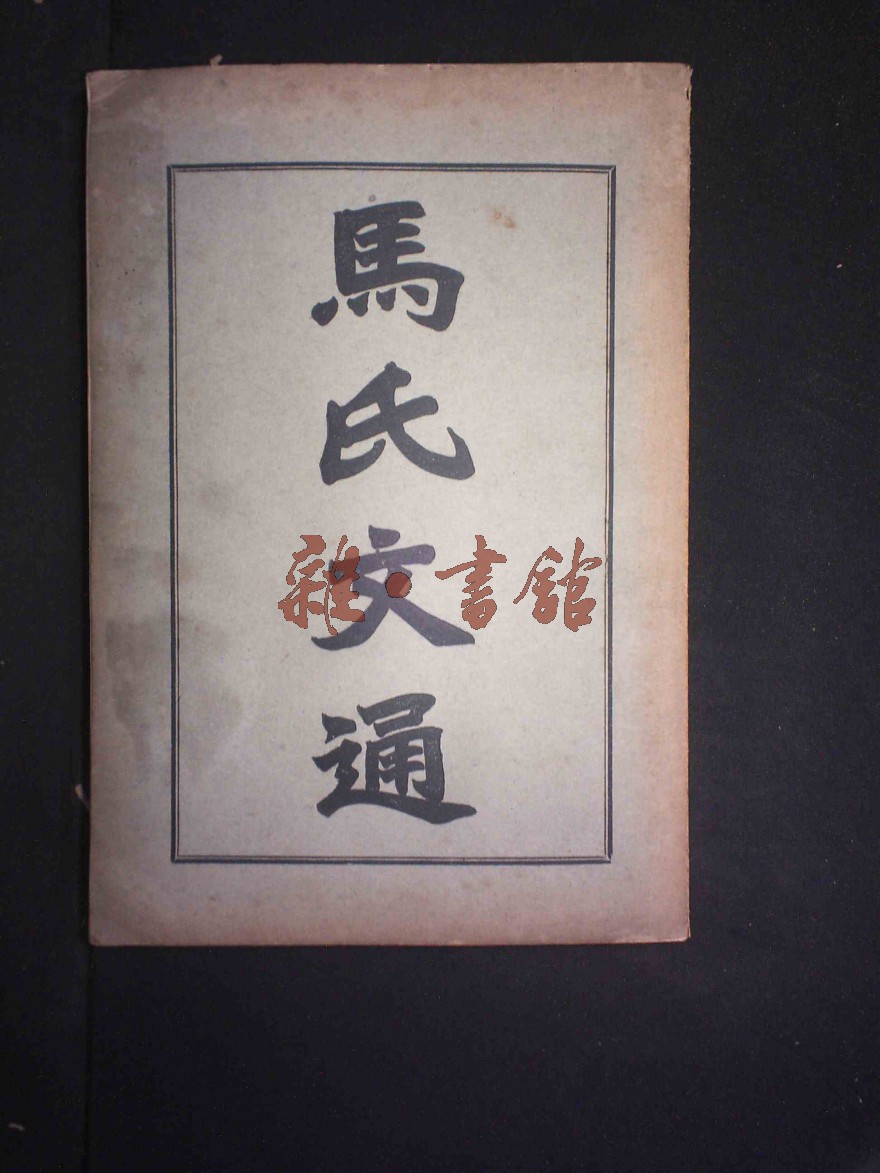 馬氏交通
雜·書館